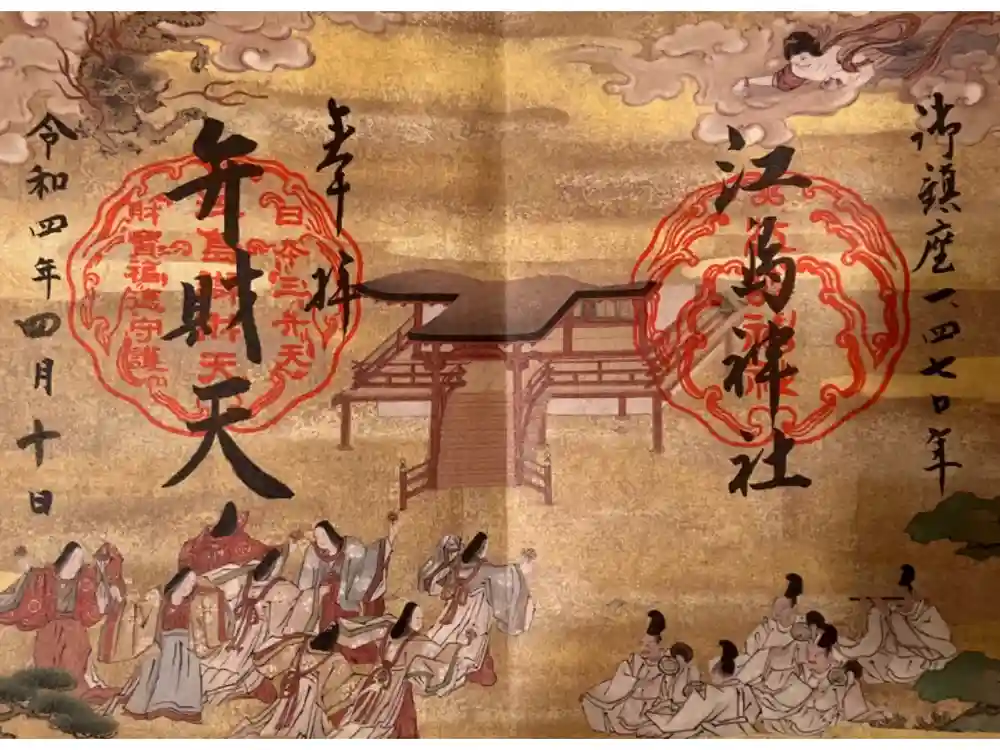 御鎮座一、四七〇年
江島神社
奉拝
弁財天
日本三弁天
江島辨財天
財寶福徳守護
令和四年四月十日